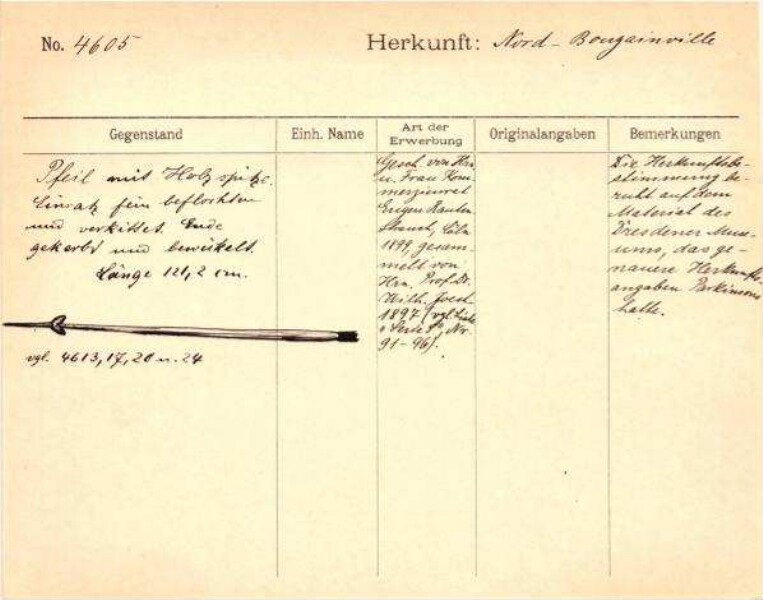 No. 4605
Herkunft: Nord-Bougainville
Gegenstand
Einh. Name
Art der
Erwerbung
Originalangaben
Bemerkungen
Pfeil mit Holzspitze.
Einsatz fein beflochten
und verkittet. Ende
gekerbt und bewickelt.
Länge 121,2 cm.
vgl. 4613, 17, 20 u. 24
Gesch. von Hrn.
u. Frau Kom-
merzienrat
Eugen Rauten-
strauch, Cöln
1899, gesam-
melt von
Hrn. Prof. Dr.
Wilh. Joest
1897 (vgl. Liste
Nr.
91-96).
Die Herkunftsbe-
stimmung be-
ruht auf dem
Material des
Dresdener Muse-
ums, das ge-
nauere Herkunfts-
angaben Parkinsons
hatte.